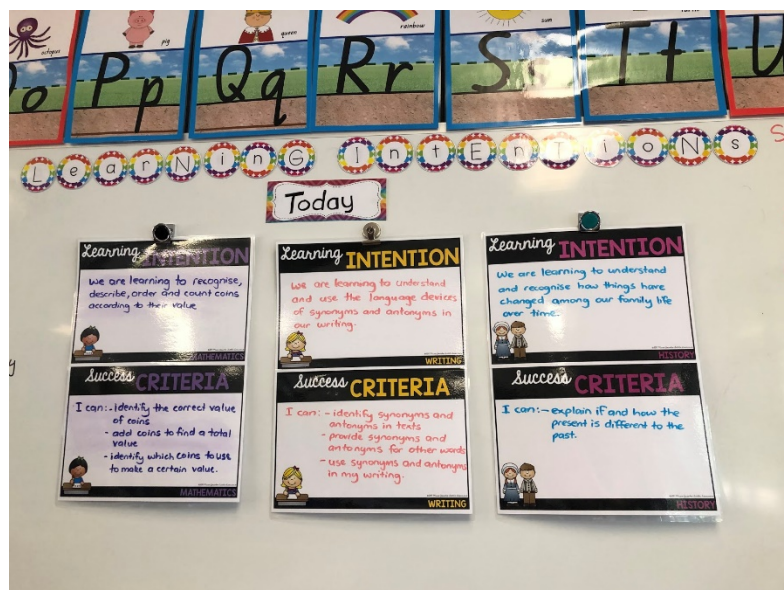 octopus
pig
queen
rainbow
sun
o
Pp
Qq
Rr
S
Tt
U
LearNinG IntEnTioNs
S
Today
Learning INTENTION
We are learning to recognise,
describe, order and count coins
according to their value
MATHEMATICS
Success CRITERIA
I can:- identify the correct value
of coins
- add coins to find a total
value
- identify which coins to use
to make a certain value.
MATHEMATICS
Learning INTENTION
We are learning to understand
and use the language devices
of synonyms and antonyms in
our writing.
WRITING
Success CRITERIA
I can: - identify synonyms and
antonyms in texts
- provide synonyms and
antonyms for other words
- use synonyms and antonyms
in my writing.
WRITING
Learning INTENTION
We are learning to understand
and recognise how things have
changed among our family life
over time.
HISTORY
Success CRITERIA
I can:- explain if and how the
present is different to the
past.
HISTORY